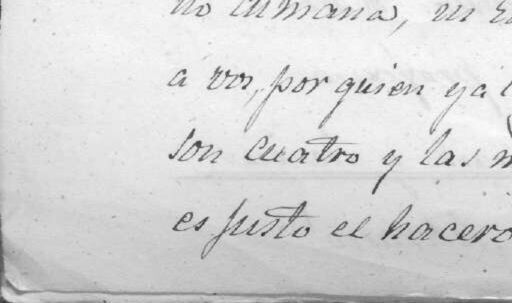 no Cumana, ni
a vos, por quien ya
son cuatro y las
es justo el hacero